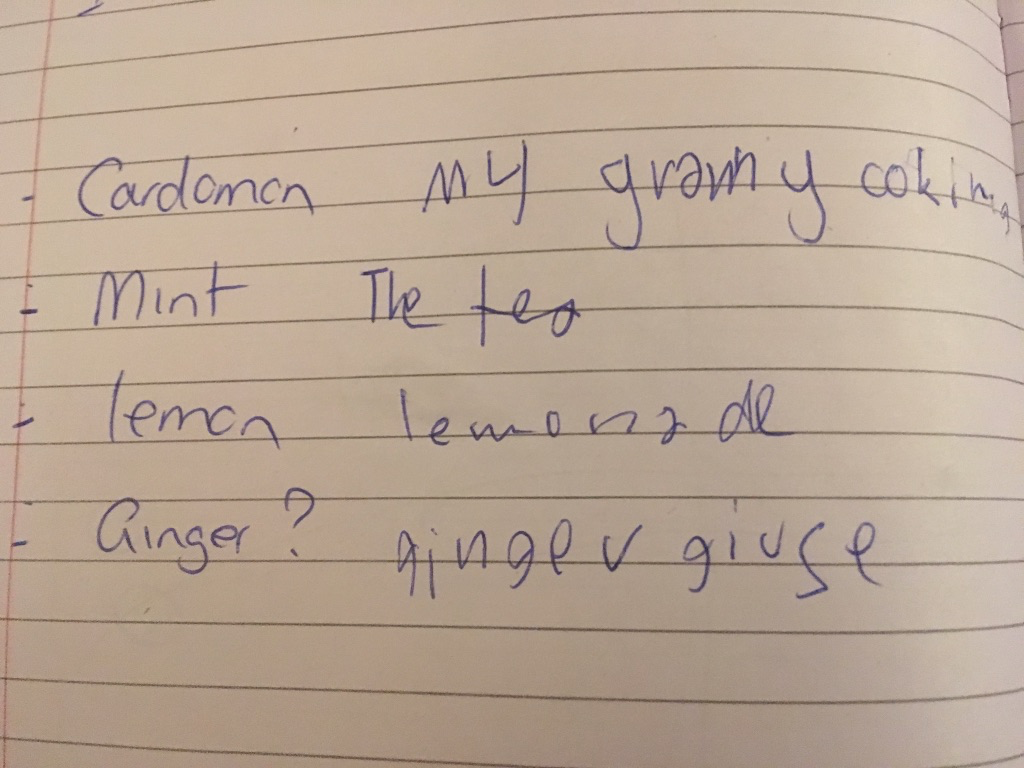 - Cardomon My gramy coking
- Mint The tea
- lemon lemonade
- Ginger? gjnger giuse